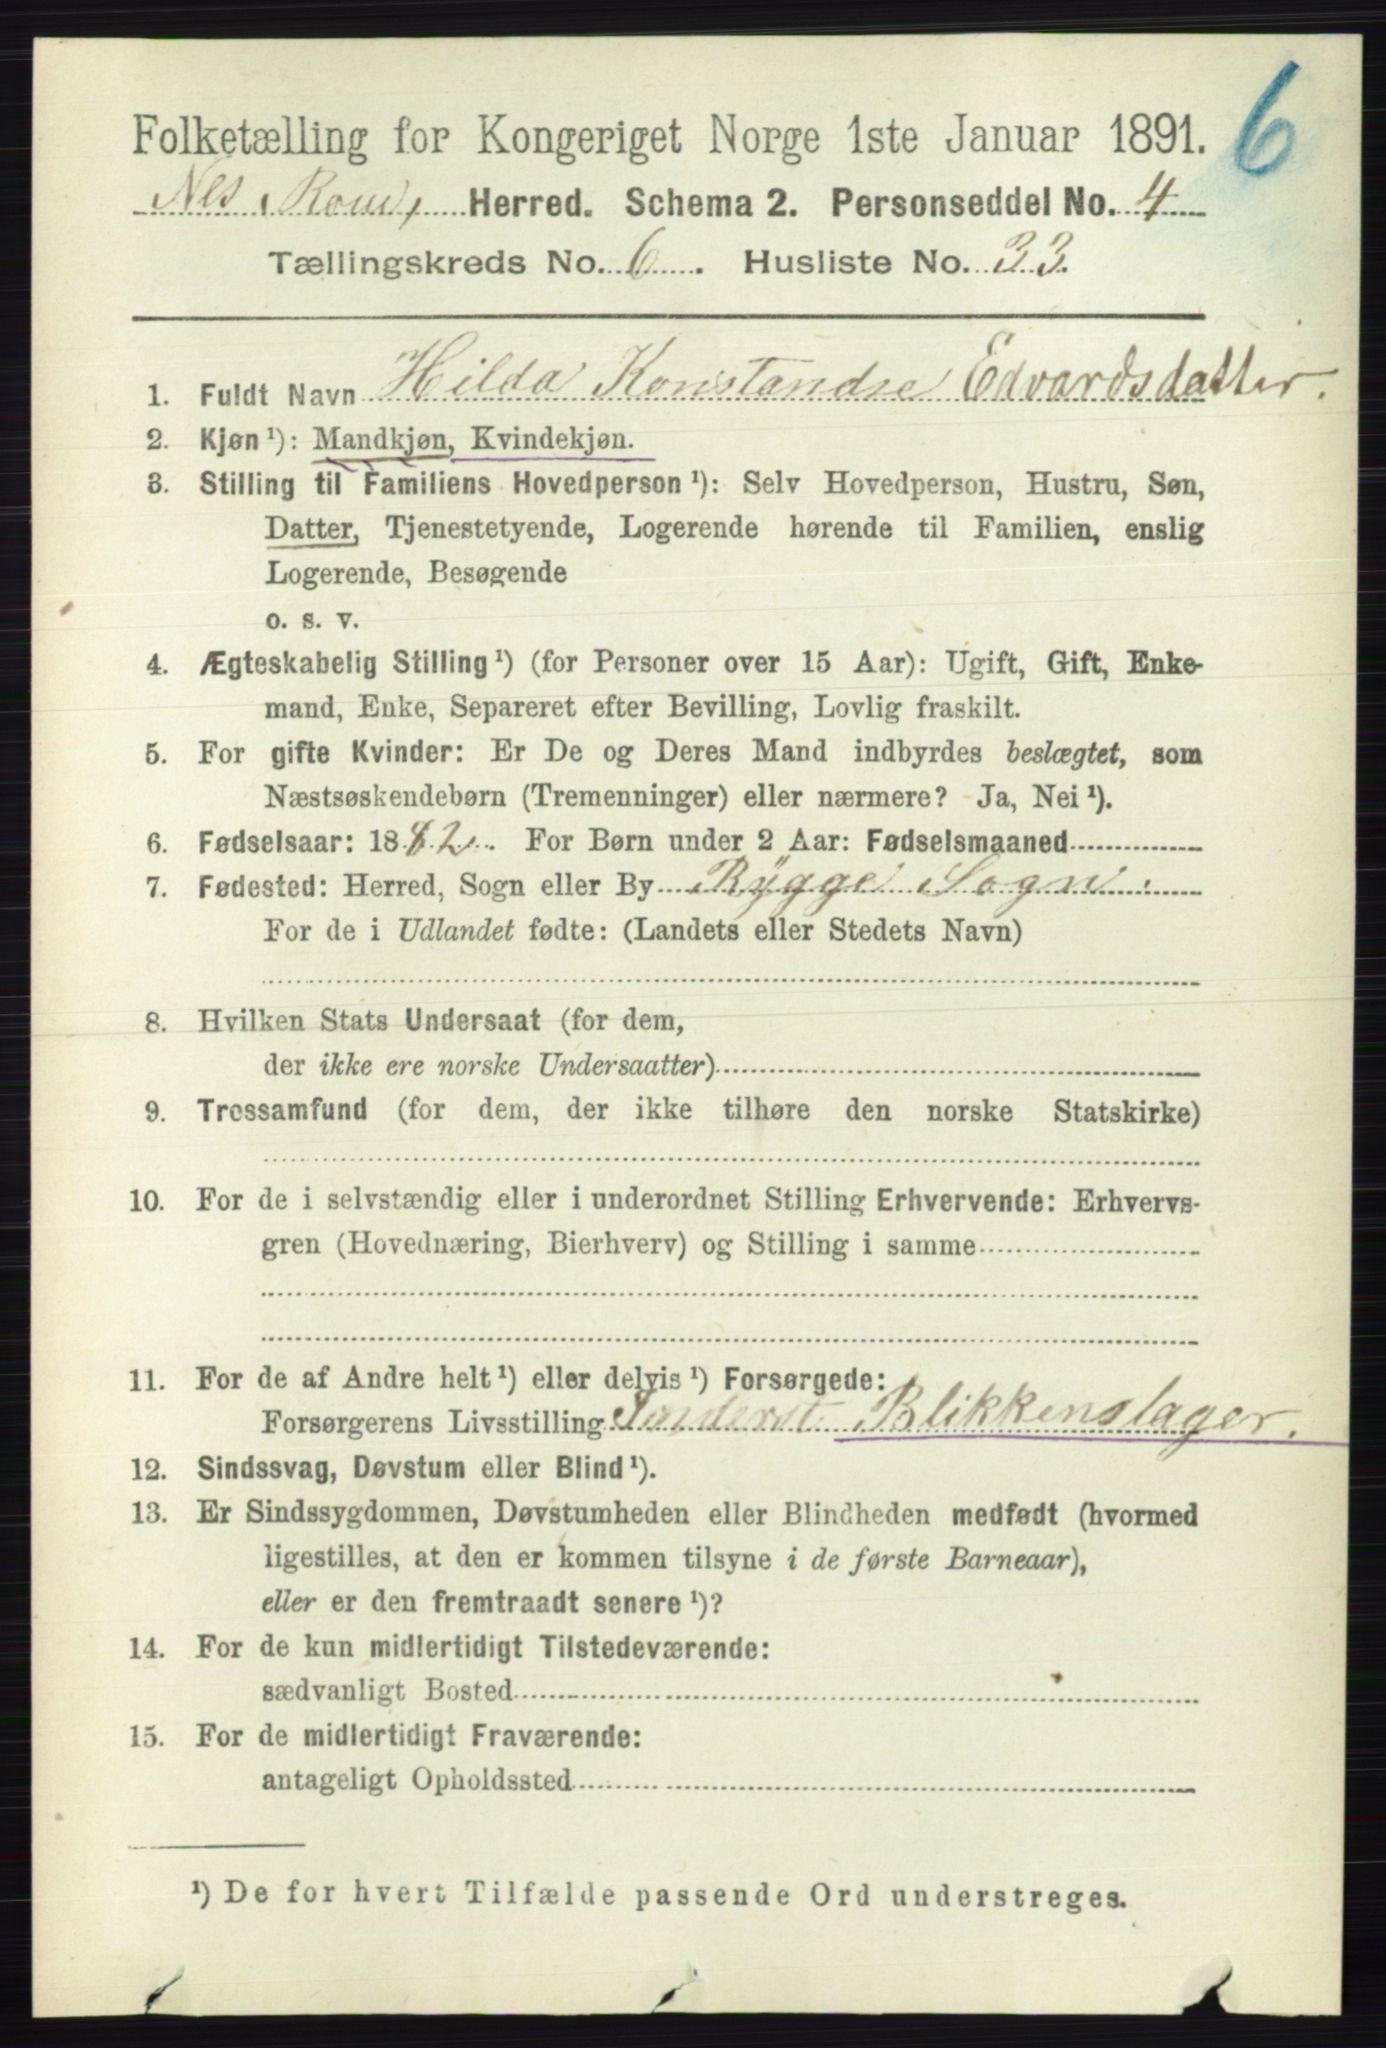 6
Folketælling for Kongeriget Norge 1ste Januar 1891.
Nes, Herred. Schema 2. Personseddel No. 4
Tællingskreds No. 6. Husliste No. 33.
1. Fuldt Navn Hilda Konstandse Edvardsdatter.
2. Kjøn ¹): Mandkjøn, Kvindekjøn.
3. Stilling til Familiens Hovedperson ¹): Selv Hovedperson, Hustru, Søn,
Datter, Tjenestetyende, Logerende hørende til Familien, enslig
Logerende, Besøgende
o. s. v.
4. Ægteskabelig Stilling ¹) (for Personer over 15 Aar): Ugift, Gift, Enke-
mand, Enke, Separeret efter Bevilling, Lovlig fraskilt.
5. For gifte Kvinder: Er De og Deres Mand indbyrdes beslægtet, som
Næstsøskendebørn (Tremenninger) eller nærmere? Ja, Nei ¹).
6. Fødselsaar: 1882. For Børn under 2 Aar: Fødselsmaaned
7. Fødested: Herred, Sogn eller By Rygge Sogn.
For de i Udlandet fødte: (Landets eller Stedets Navn)
8. Hvilken Stats Undersaat (for dem,
der ikke ere norske Undersaatter)
9. Trossamfund (for dem, der ikke tilhøre den norske Statskirke)
10. For de i selvstændig eller i underordnet Stilling Erhvervende: Erhvervs-
gren (Hovednæring, Bierhverv) og Stilling i samme
11. For de af Andre helt ¹) eller delvis ¹) Forsørgede:
Forsørgerens Livsstilling Blikkenslager.
12. Sindssvag, Døvstum eller Blind ¹).
13. Er Sindssygdommen, Døvstumheden eller Blindheden medfødt (hvormed
ligestilles, at den er kommen tilsyne i de første Barneaar),
eller er den fremtraadt senere ¹)?
14. For de kun midlertidigt Tilstedeværende:
sædvanligt Bosted
15. For de midlertidigt Fraværende:
antageligt Opholdssted
¹) De for hvert Tilfælde passende Ord understreges.